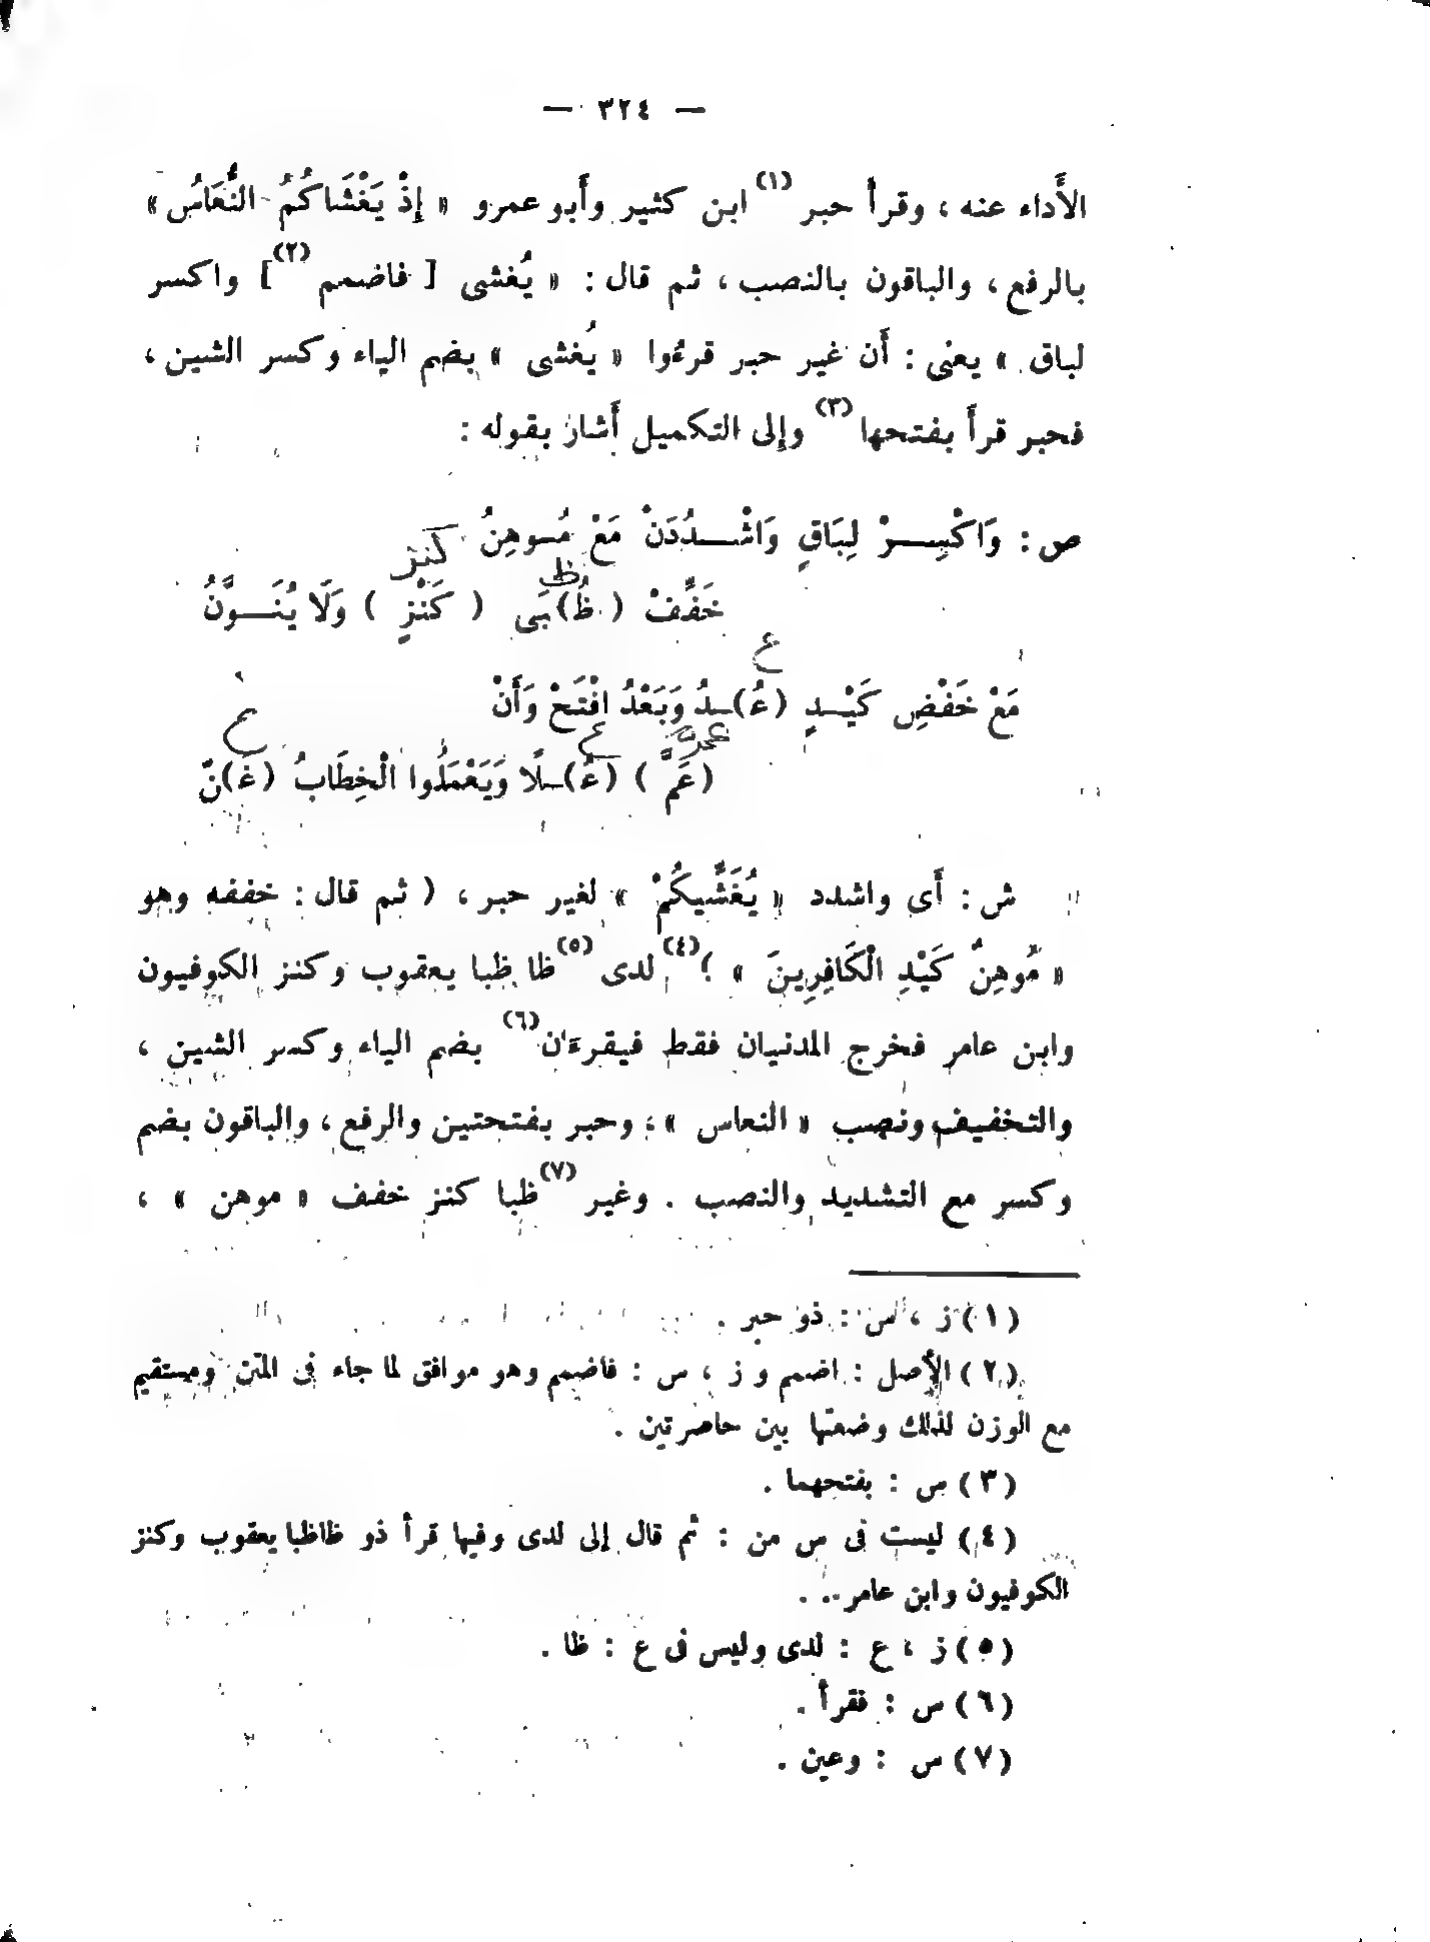 — ٣٢٤ —
الأَداء عنه ، وقرأ حبر (١) ابن كثير وأَبو عمرو « إِذْ يَغْشَاكُمُ النُّعَاسُ »
بالرفع ، والباقون بالنصب ، ثم قال : « يُغشى [ فاضمم (٢)] واكسر
لباق » يعنى : أَن غير حبر قرءُوا « يُغشى » بضم الياء وكسر الشين ،
فحبر قرأَ بفتحها (٣) وإلى التكميل أَشار بقوله :
ص : وَاكْسِـــرْ لِبَاقٍ وَاشْـــدُدَنْ مَعْ مُــوهِنُ
كنز
ظ
خَفِّفْ ( ظُ)بَى ( كَنْزٍ ) وَلَا يُنَـــوَّنُ
ع
مَعْ خَفْضِ كَيْــدٍ (عُ)ــدْ وَبَعْدُ افْتَحْ وَأَنْ
عم ع ع
(عَمَّ ) (عُ)ـلًا وَيَعْمَلُوا الْخِطَابُ (غَ)نّ
ش : أَى واشدد « يُغَشِّيكُمْ » لغير حبر ، ( ثم قال : خففه وهو
« مُوهِنٌ كَيْدِ الْكَافِرِينَ » ؛(٤) لدى (٥) ظا ظبا يعقوب وكنز الكوفيون
وابن عامر فخرج المدنيان فقط فيقرءَان(٦) بضم الياء وكسر الشين ،
والتخفيف ونصب « النعاس » ؛ وحبر بفتحتين والرفع ، والباقون بضم
وكسر مع التشديد والنصب . وغير (٧) ظبا كنز خفف « موهن » ،
(١) ز ، س : ذو حبر .
(٢) الأصل : اضمم و ز ، س : فاضمم وهو موافق لما جاء فى المتن ومستقيم
مع الوزن لذلك وضعتها بين حاصرتين .
(٣) س : بفتحهما .
(٤) ليست فى س من : ثم قال إلى لدى وفيها قرأ ذو ظاظبا يعقوب وكنز
الكوفيون وابن عامر .. .
(٥) ز ، ع : لدى وليس فى ع : ظا .
(٦) س : فقرأ .
(٧) س : وعين .